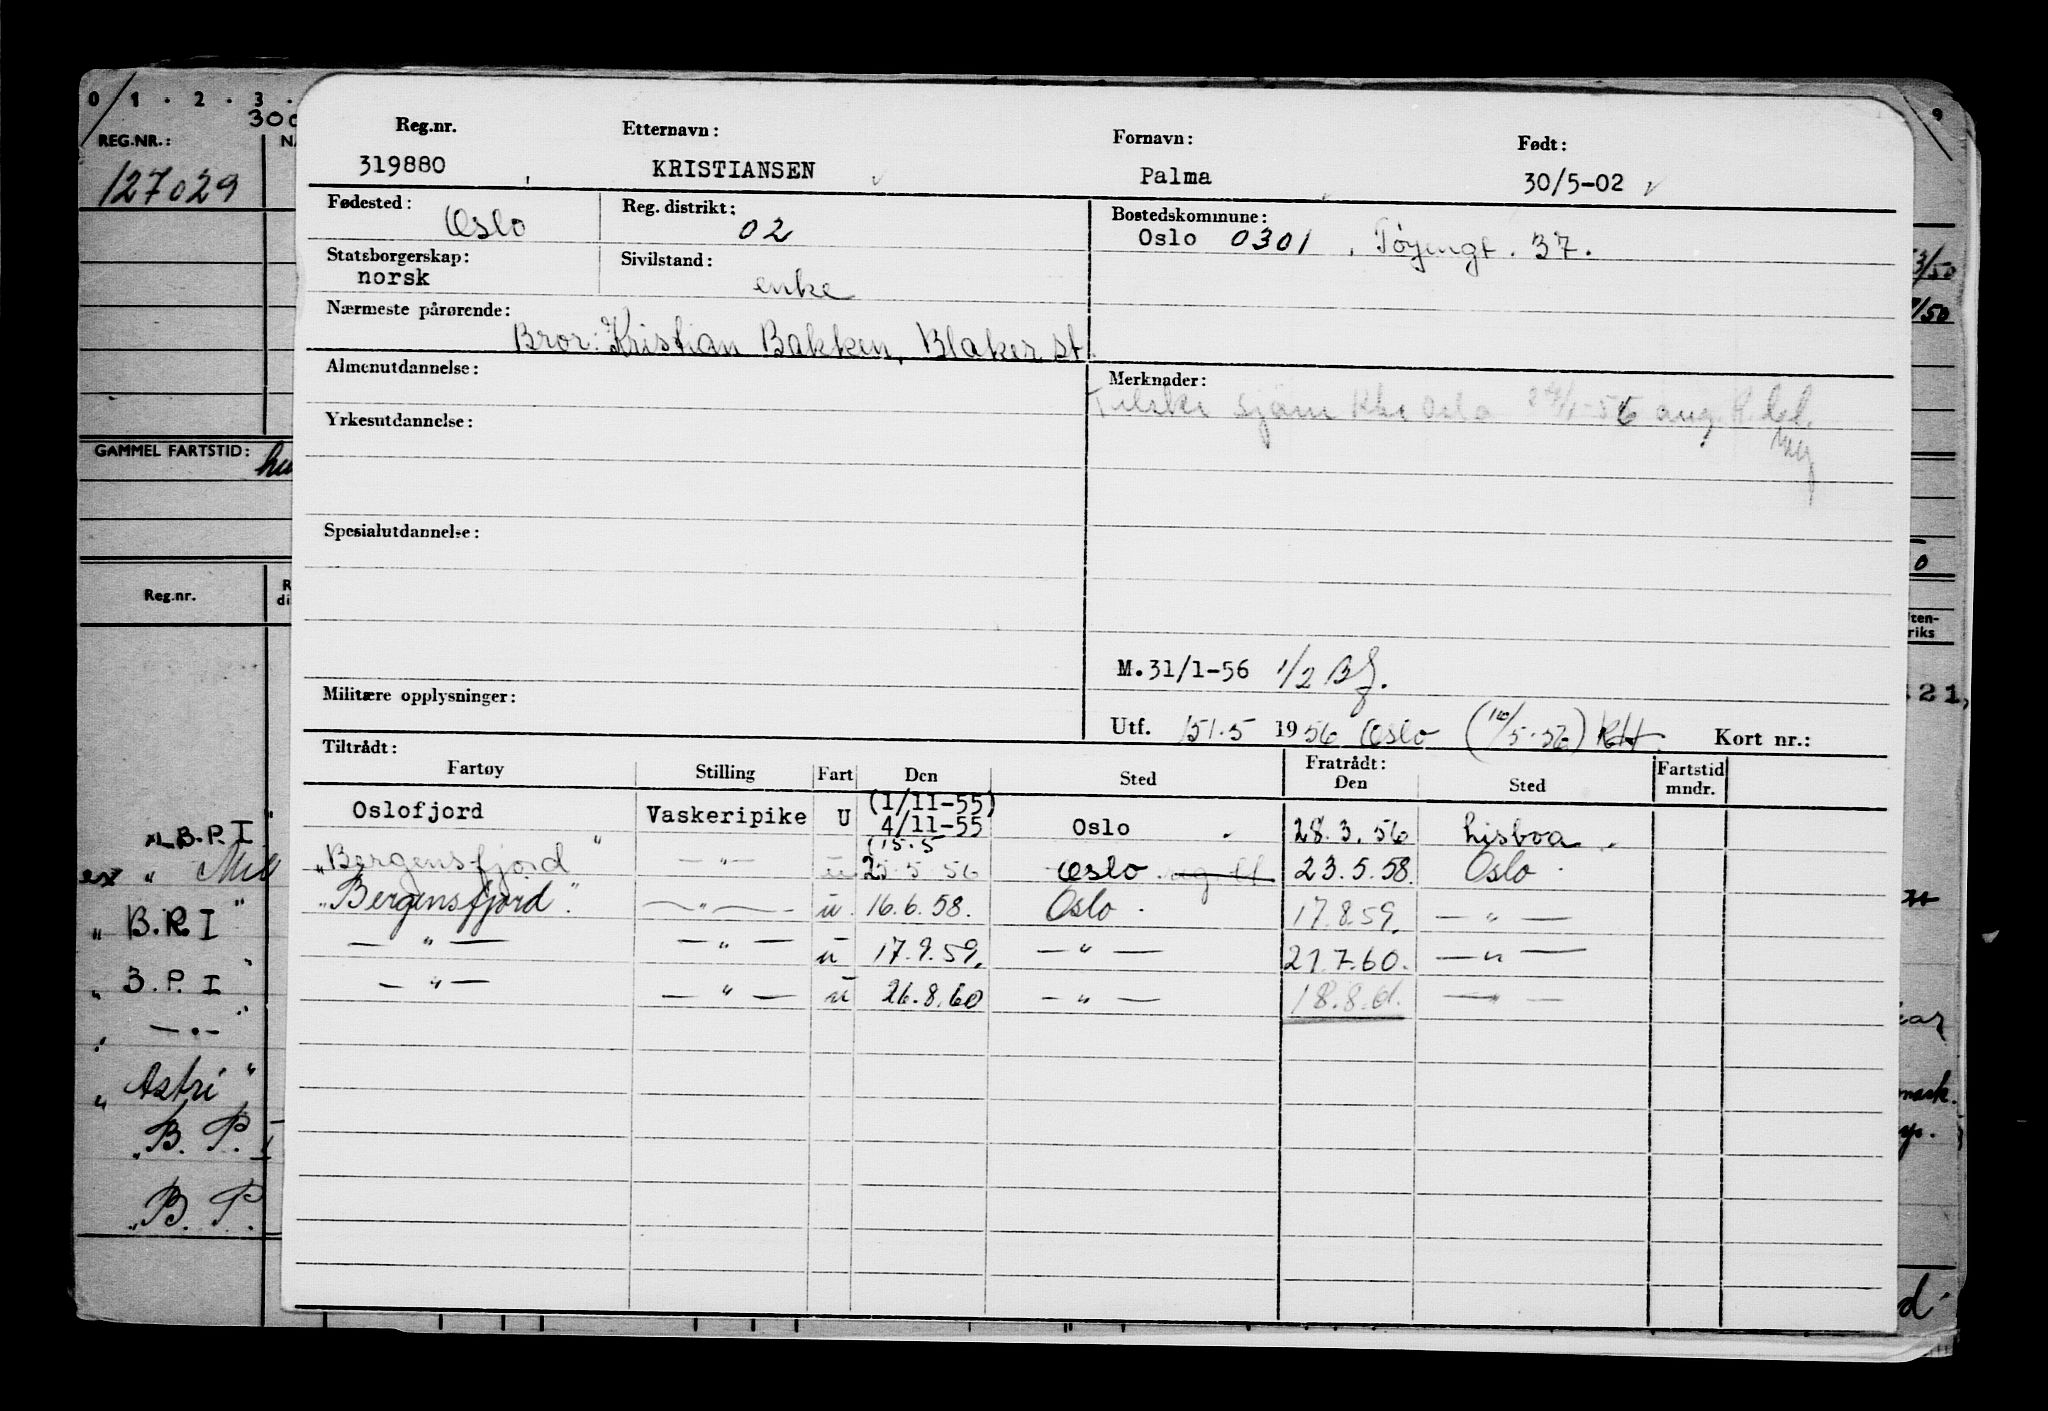 0 1 . 2 . 3 .
9
300
REG.NR.:
127029
GAMMEL FARTSTID:
Reg.nr.
Reg.nr. Etternavn: Fornavn: Født:
319880 KRISTIANSEN Palma 30/5-02
Fødested: Oslo Reg. distrikt: 02 Bostedskommune:
Oslo 0301, Tøyengt. 37.
Statsborgerskap: norsk Sivilstand: enke
Nærmeste pårørende:
Bror: Kristian Bakken, Blaker st.
Almenutdannelse: Merknader:
Oslo
Yrkesutdannelse:
Spesialutdannelse:
M.31/1-56 1/2 BJ.
Militære opplysninger:
Utf. 1956 Oslo Kort nr.:
Tiltrådt: Fratrådt:
Fartøy Stilling Fart Den Sted Den Sted Fartstid mndr.
Oslofjord Vaskeripike U (1/11-55) 4/11-55 Oslo 28.3.56 Lisboa
"Bergensfjord" — " — u (15.5 25.5.56 Oslo 23.5.58. Oslo
"Bergensfjord" — " — u. 16.6.58. Oslo 17.8.59. — " —
— " — — " — u 17.9.59. — " — 21.7.60. — " —
— " — — " — u 26.8.60 — " — 18.8.61. — " —
B.P.I"
" B.P.I"
" B.P.I"
" — " — "
" Astri"
"B. P. I
"B. P.
3/50
/50
ten-
riks
21,
mask.